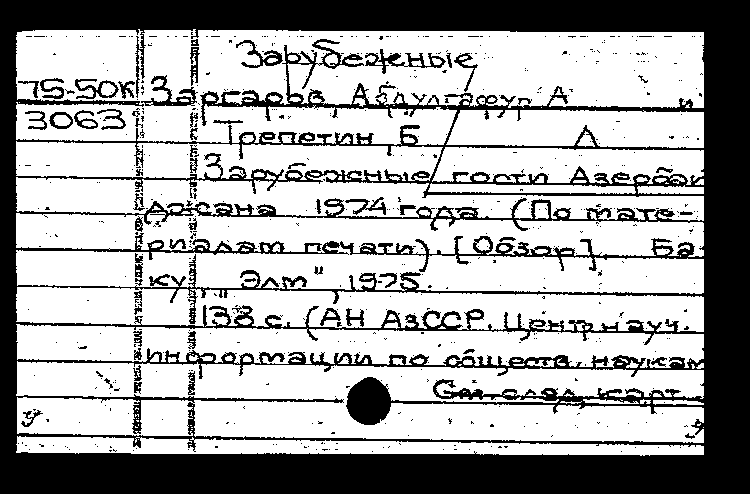 Зарубежные
75-50к Заргаров, Абдулгафур А и
3063 Трепетин, Б Л
Зарубежные гости Азербай
джана 1974 года. (По мате-
риалам печати). [Обзор]. Ба-
ку, „Элм", 1975.
138 с. (АН АзССР. Центр науч.
информации по обществ. наукам
См. след. карт.
у.